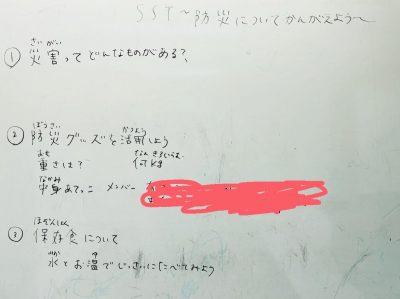 SST～防災についてかんがえよう～
さいがい
① 災害ってどんなものがある?
ぼうさい かつよう
② 防災グッズを活用しよう
おも なんきろぐらむ
重さは? 何kg
なかみ
中身あてっこ メンバー
ほぞんしょく
③ 保存食について
みず ゆ
水とお湯でじっさいに